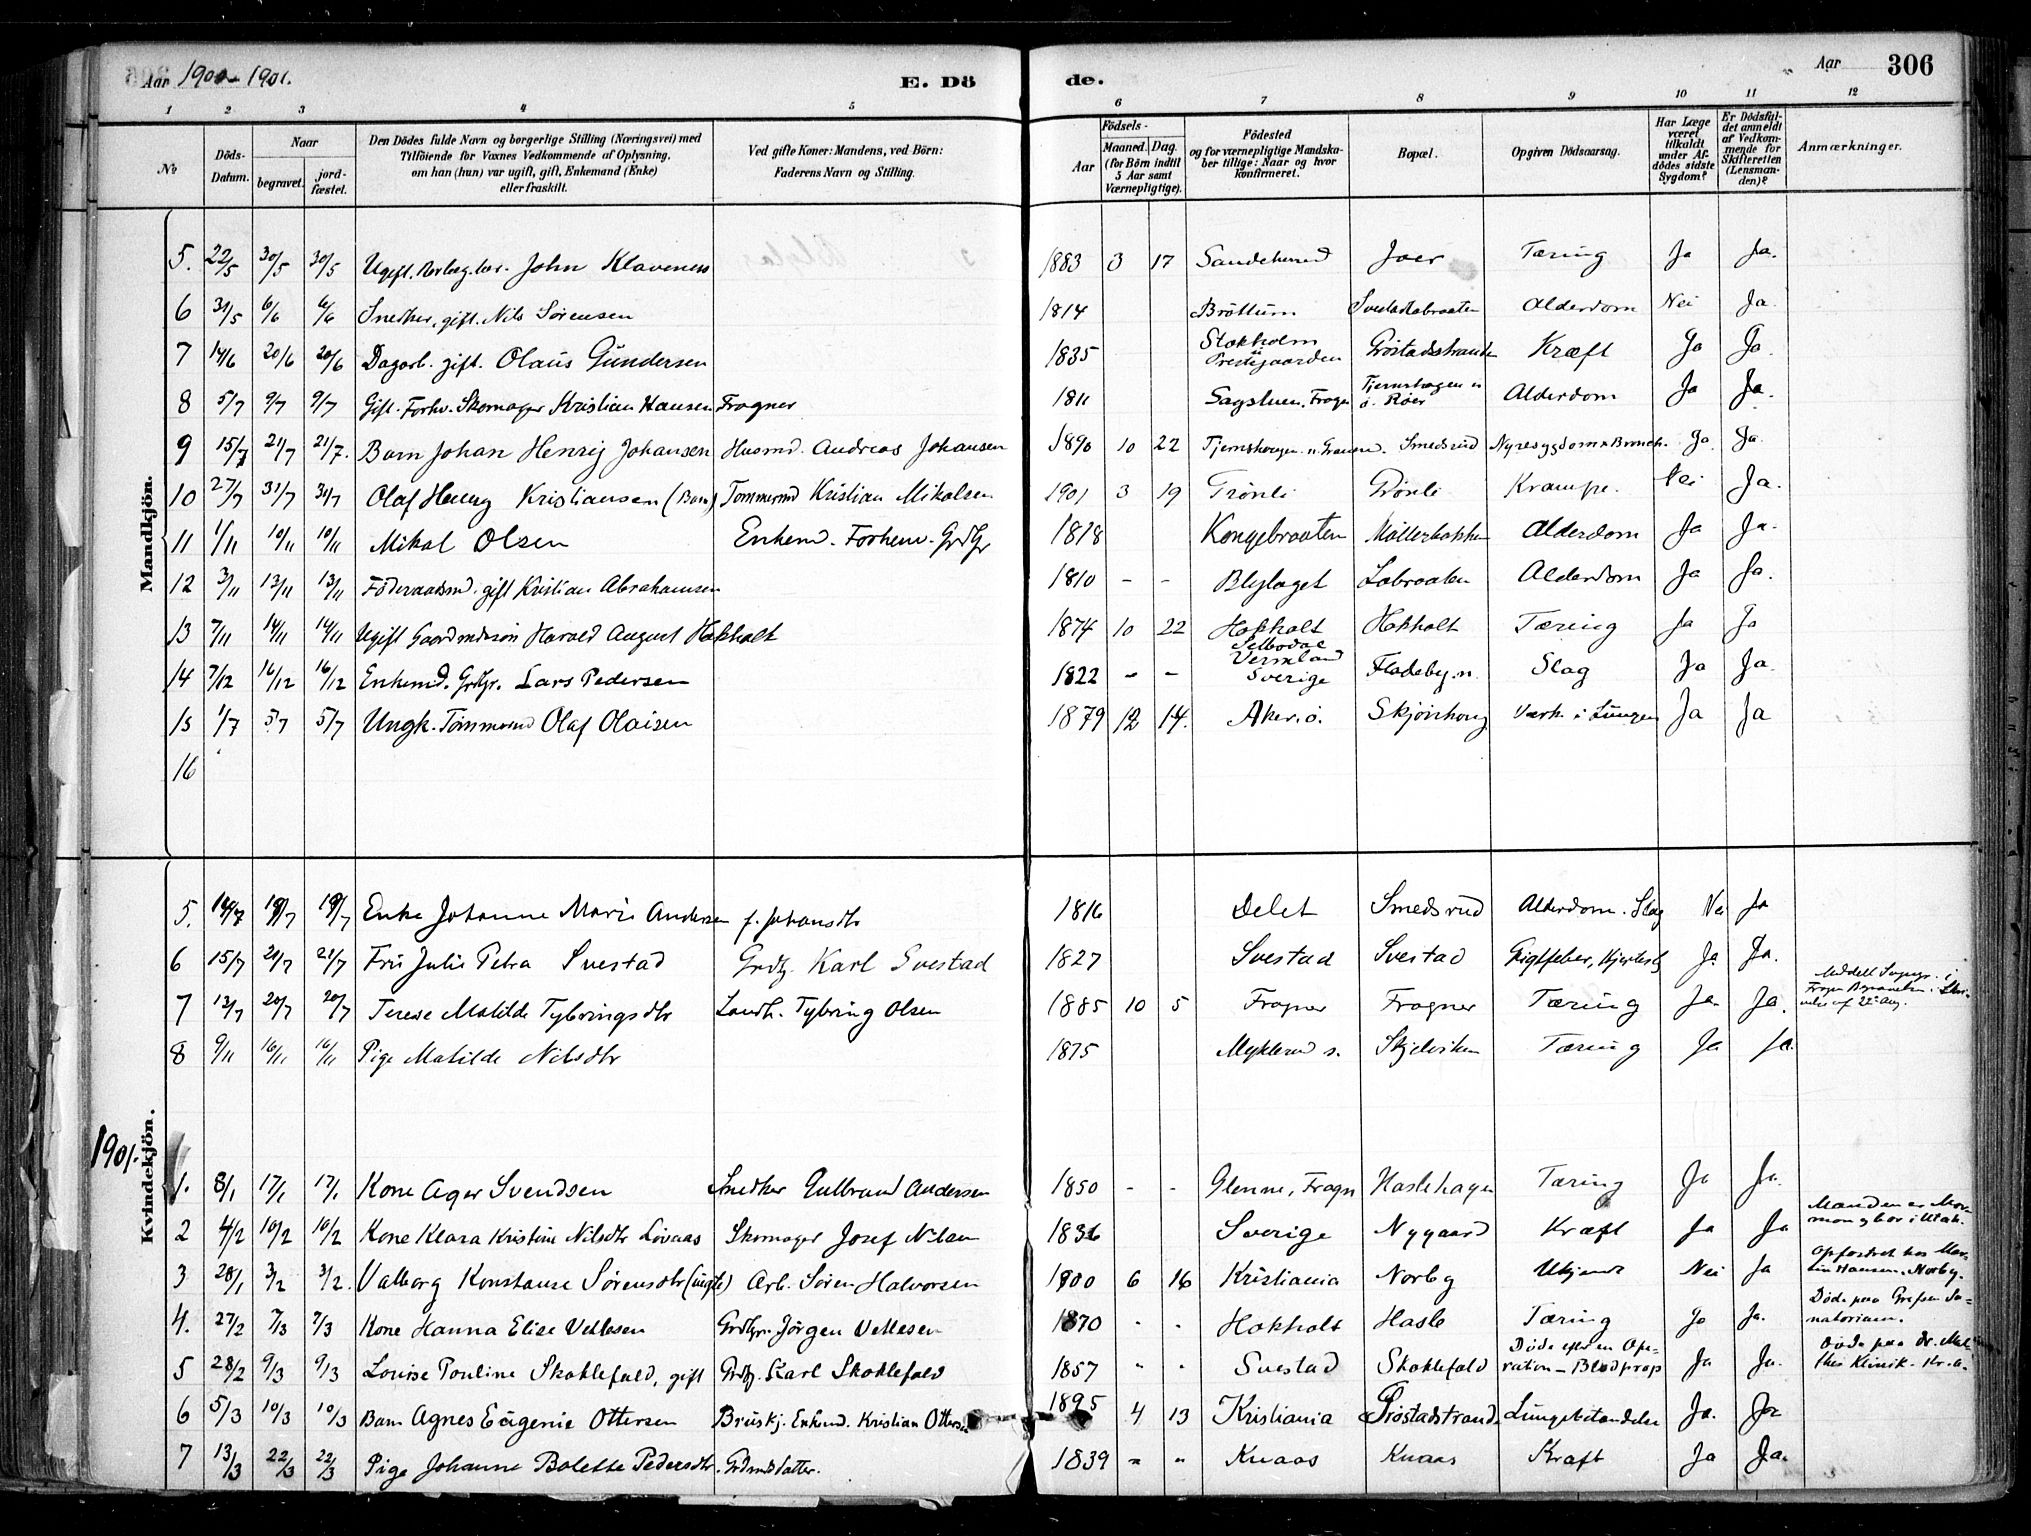 Aar 1900-1901.
E. Dö
de.
Aar
306
1 2 3 4 5 6 7 8 9 10 11 12
No
Döds-Datum.
Naar
begravet.
jord-fæstet.
Den Dödes fulde Navn og borgerlige Stilling (Næringsvei) med
Tilföiende for Voxnes Vedkommende af Oplysning,
om han (hun) var ugift, gift, Enkemand (Enke)
eller fraskilt.
Ved gifte Koner: Mandens, ved Börn:
Faderens Navn og Stilling.
Födsels-
Aar
Maaned. Dag.
(for Börn indtil
5 Aar samt
Værnepligtige).
Födested
og for værnepligtige Mandska-
ber tillige: Naar og hvor
konfirmeret.
Bopæl.
Opgiven Dödsaarsag.
Har Læge
været
tilkaldt
under Af-
dödes sidste
Sygdom?
Er Dödsfal-
det anmeldt
af Vedkom-
mende for
Skifteretten
(Lensman-
den)?
Anmærkninger.
Mandkjön.
5. 22/5 30/5 30/5 Ugift. John Klaveness 1883 3 17 Sandeherred Joer Tæring Ja Ja.
6 31/5 6/6 6/6 Snedker, gift. Nils Sörensen 1814 Bröttum Svestadbraaten Alderdom Nei Ja.
7 14/6 20/6 20/6 Dagarb. gift. Olaus Gundersen 1835 Stokholm Prestegaarden Pröstadstranden Kræft Ja Ja.
8 5/7 9/7 9/7 Gift. Forhv. Skomager Kristian Hansen Frogner 1811 Sagstuen, Frogn Tjernshagen u. ö. Röer Alderdom Ja Ja.
9 15/7 21/7 21/7. Barn Johan Henrij Johansen Husmd. Andreas Johansen 1890 10 22 Tjernshaugen u. Smedsrud Nyresygdom Ja. Ja.
10 27/7 31/7 31/7 Olaf Henry Kristiansen (Barn) Tommermd Kristian Mikalsen 1901 3 19 Grönli Grönli Krampe. Nei Ja.
11 1/11 10/11 10/11 Mikal Olsen Enkemd. Forhenv. Grdbr 1818 Kongebraaten Möllerbakken Alderdom Ja Ja.
12 3/11 13/11 13/11 Föderaadsmd. gift Kristian Abrahamsen 1810 - - Blylaget Labraaten Alderdom Ja Ja.
13 7/11 14/11 14/11 Ugift Gaardmdssön Harald August Hokholt 1874 10 22 Hokholt Hokholt Tæring Ja Ja
14 7/12 16/12 16/12 Enkemd. Grdbr. Lars Pedersen 1822 - - Selbodal Vermland Sverige Fladeby. n. Slag Ja Ja.
15 1/7 5/7 5/7 Ungk. Tömmermd Olaf Olaisen 1879 12 14. Aker. ö. Skjönhaug Værk. i Lungen Ja Ja
16
Kvindekjön.
5. 14/7 19/7 19/7 Enke Johanne Marie Andersen f. Johansdtr 1816 Delet Smedsrud Alderdom. Slag Nei Ja
6 15/7 21/7 21/7 Fru Julie Petra Svestad Grdbr. Karl Svestad 1827 Svestad Svestad Gigtfeber, Ja Ja.
7 13/7 20/7 20/7 Terese Matilde Tybringsdtr Landh. Tybring Olsen 1885 10 5 Frogner Frogner Tæring Ja. Ja.
8 9/11 16/11 16/11 Pige Matilde Nilsdtr 1875 Myklerud s. Skjelviken Tæring Ja Ja.
1901.
1. 8/1 17/1 17/1 Kone Ager Svendsen Snedker Gulbrand Andersen 1850 - - Glenne, Frogn Haslehagen Tæring Ja Ja.
2 4/2 10/2 10/2 Kone Klara Kristine Nilsdtr Lövaas Skomager Josef Nilsen 1836 Sverige Nygaard Kræft Ja Ja Manden er Mormon og bor i Utah.
3 28/1 3/2 3/2. Valborg Konstanse Sörensdtr (uægte) Arb. Sören Halvorsen 1900 6 16 Kristiania Norby Ukjendt Nei Ja Opfostret hos Martin Hansen, Norby.
4. 27/2 7/3 7/3 Kone Hanna Elise Vetlesen Grdbr. Jörgen Vetlesen 1870 " " Hokholt Hasle Tæring Ja Ja. Döde paa Grefsen Sanatorium.
5 28/2 9/3 9/3 Louise Pouline Skoklefald, gift Grdbr. Karl Skoklefald 1857 " " Svestad Skoklefald Döde efter en Operation - Blodprop Ja Ja. Döde paa Dr. Klinik. Kr.a.
6 5/3 10/3 10/3 Barn Agnes Eugenie Ottersen Bruskj. Enkemd. Kristian Ottersen 1895 4 13 Kristiania Pröstadstrand Lungebetændelse Ja. Ja
7 13/3 22/3 22/3 Pige Johanne Bolette Pedersdtr. Grdmdsdatter. 1839 " " Knaas Knaas Kræft Ja Ja.